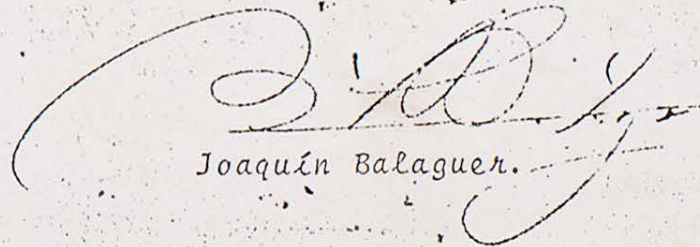 Joaquín Balaguer.